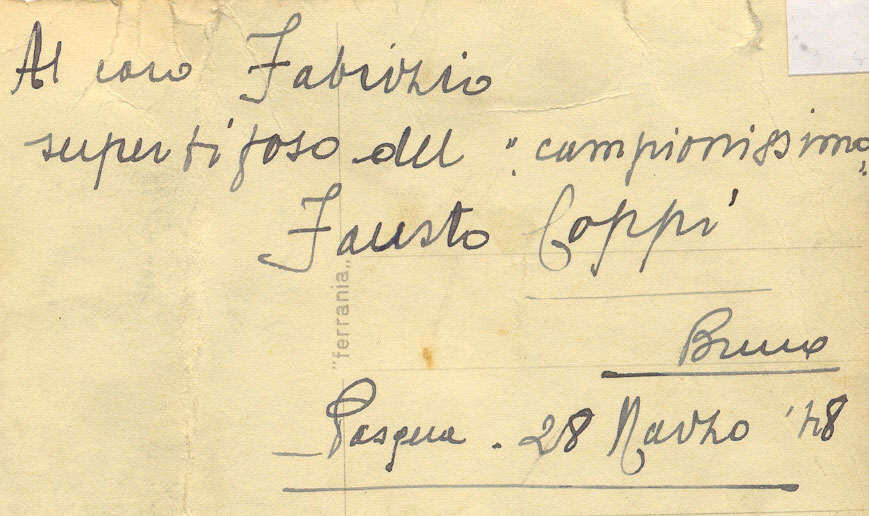 Al caro Fabrizio
supertifoso del "campionissimo"
Fausto Coppi
"ferrania"
Bruno
Pasqua . 28 Marzo '48